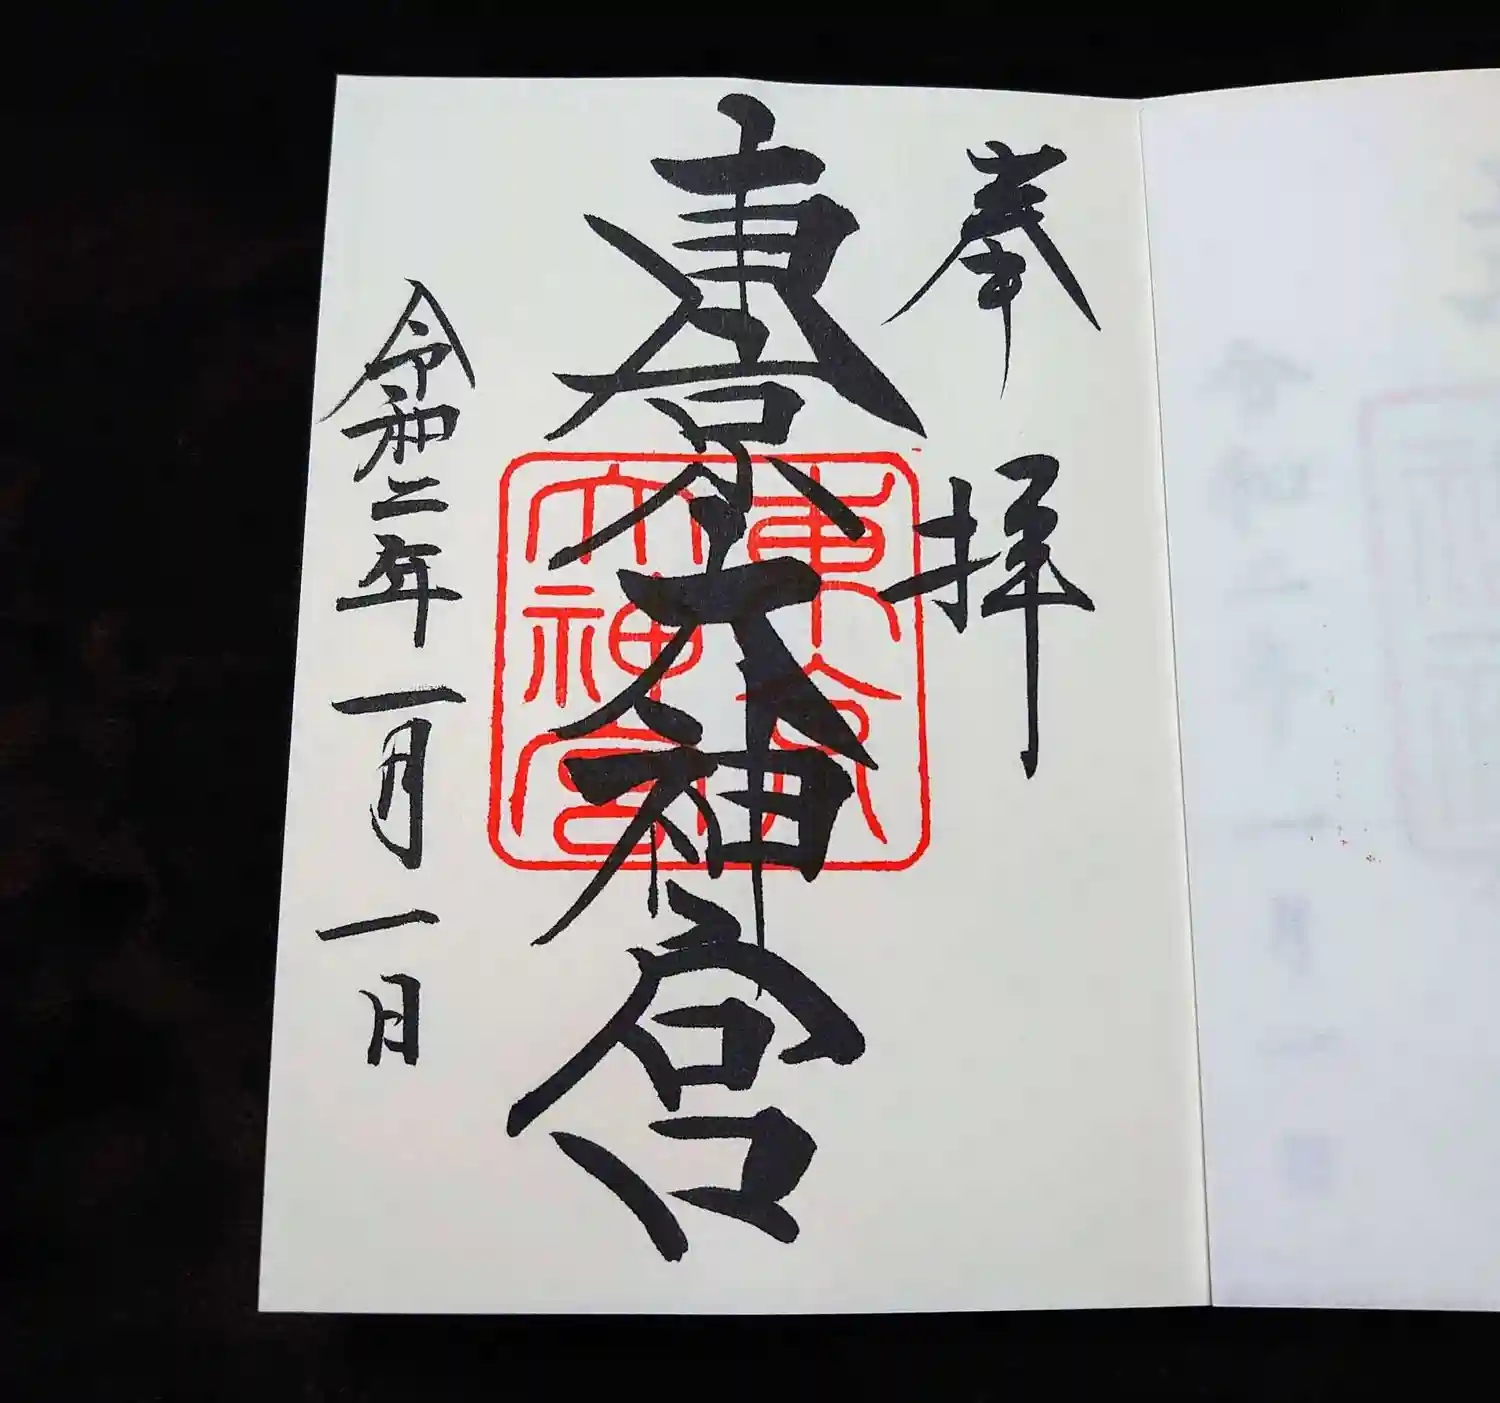 奉拝
東京大神宮
東京大神宮
令和二年一月一日